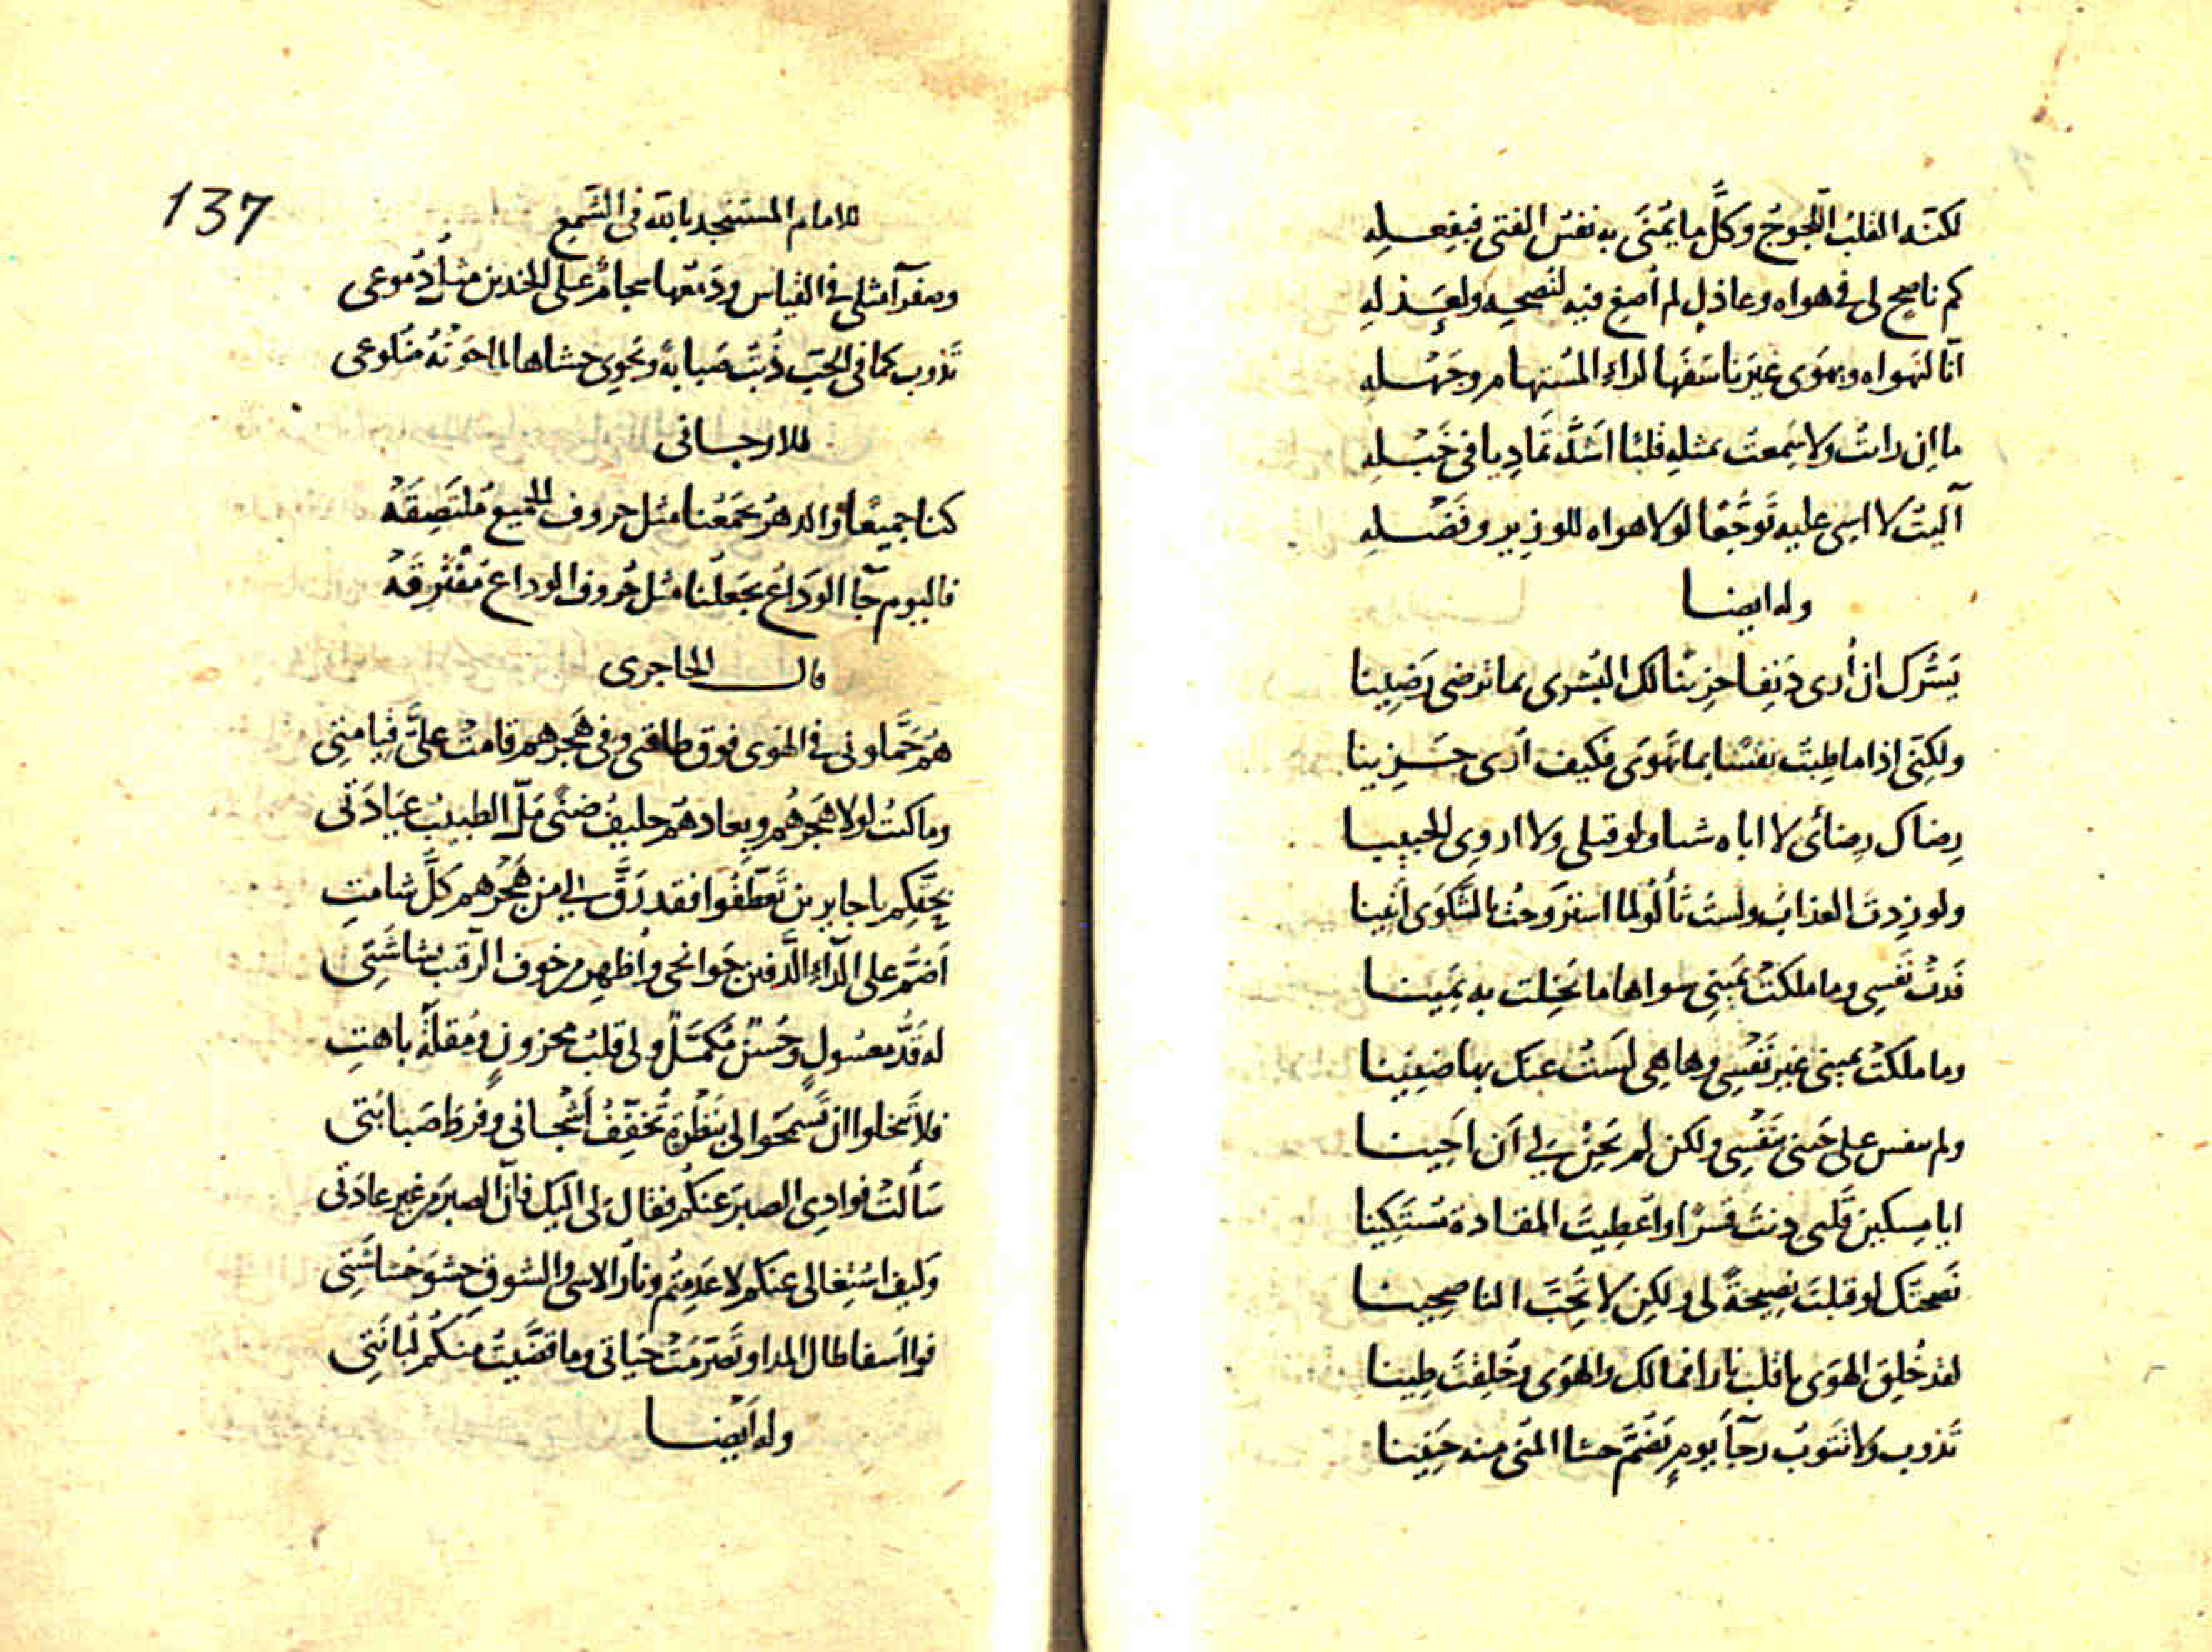 لكنه القلب اللجوج وكل ما يمنى به نفس الفتى فبفعله
كم ناصح لى فى هواه وعاذل لم أصغ فيه لنصحه ولعذله
انا لنهواه ويهوى غيرنا سفها لداء المستهام وجهله
ما ان رات ولا سمعت بمثله قلبا اشد تماديا فى خبله
آليت لا اسى عليه توجعا لولا هواه للوزير وفضله
وله ايضا
يسرك ان أرى دنفا حزينا لك البشرى بما ترضى رضينا
ولكنى اذا ما طبت نفسا بما تهوى فكيف أرى حزينا
رضاك رضائى لا اباه شيا ولو قتلى ولا اروى الحبيبا
ولو زدت العذاب ولست تألو لما استروحت بالشكوى أنينا
فدت نفسى وما ملكت يمينى سواها ما بخلت به يمينا
وما ملكت يمينى غير نفسى وها هى لست عنك بها ضنينا
ولم سفس على حسى بنفسى ولكن لم يحن لى أن احينا
ايا مسكين قلبى دنت قسرا واعطيت المقادة مستكينا
نصحتك لو قبلت نصيحة لى ولكن لا تحب الناصحينا
لقد خلق الهوى يا قلب نارا فمالك والهوى وخلقت طينا
تذوب ولا تتوب رجآ يوم يضم حشا المنى منه جنينا
137
للامام المستنجد بالله فى الشمع
وصفرآ مثلى فى القياس ودمعها سجام على الخدين مثل دموعى
تذوب كما فى الحب ذبت صبابة وتحوى حشاها ما احوته ضلوعى
للارجانى
كنا جميعا والدهر يجمعنا مثل حروف الجميع ملتصقه
فاليوم جآ الوداع يجعلنا مثل حروف الوداع مفترقه
قال الحاجرى
هم حملونى فى الهوى فوق طاقتى وفى هجرهم قامت على قيامتى
وما كنت لولا هجرهم وبعادهم حليف ضنى مل الطبيب عيادتى
بحقكم يا جايرين تعطفوا فقد رق لى من هجرهم كل شامت
اضم على الدآء الدفين جوانحى واظهر من خوف الرقيب بشاشتى
له قد معسول وحسن مكمل ولى قلب محزون ومقلة باهت
فلا تبخلوا ان تسمحوا لى بنظرة تخفف أشجانى وفرط صبابتى
سألت فوادى الصبر عنكم فقال لى اليك فان الصبر من غير عادتى
وكيف اشتغالى عنكم لا عدمتم ونار الاسى والشوق حشو حشاشتى
فوا اسفا طال المدا وتصرمت حياتى وما قضيت منكم لبانتى
وله ايضا